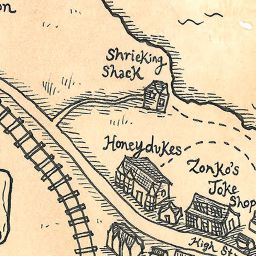 on
Shrieking
Shack
Honeydukes
Zonko's
Joke
Shop
High St